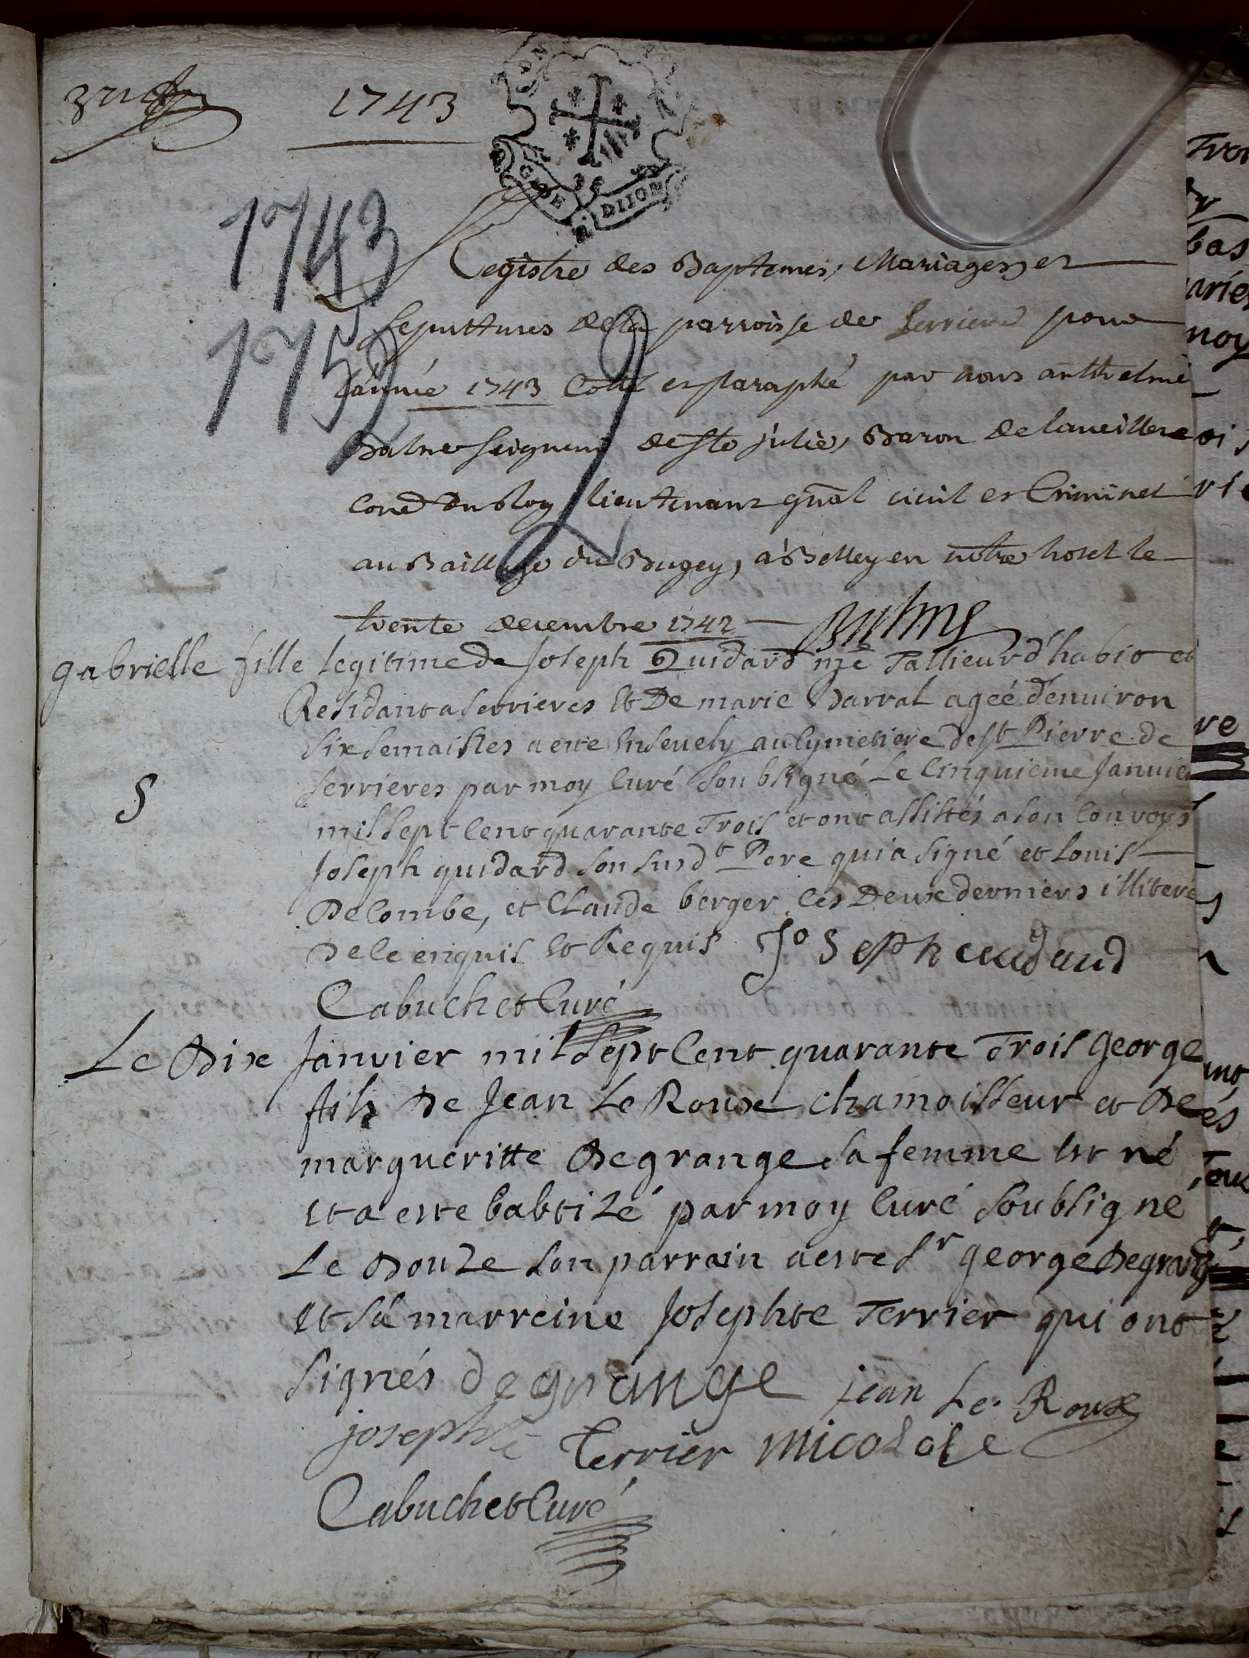 1743
GENE DIJON
1743
1752
Registre des Baptemes, Mariages, et
sepulttures de la parroisse de Serriere pour
l'année 1743 Cotté et paraphé par nous anthelme
Balme seigneur de Ste julie, Baron de
Conser du Roy lieutenant gnal civil et Criminel
au Baillage du Bugey, a Belley en notre hotel le
trente decembre 1742 Balme
gabrielle fille legitime de Joseph Quidard Tallieur d'habit et
Residant a serrieres Et De marie Barral agée d'environ
six semaisnes a este Enseuely au Cymetiere de St Pierre de
S
serrieres par moy Curé soubsigné Le Cinquieme Janvier
mil sept Cent quarante Trois et ont assistés a son Convoys
Joseph quidard son susdt Pere qui a signé et Louis
Decombe, et Claude berger Ces Deux derniers illiteré
De Ce enquis Et Requis Joseph
Cabuchet Curé
Le Dix Janvier mil sept Cent quarante Trois george
fils De Jean Le Roux chamoisseur et De
margueritte Degrange sa femme Est né
Et a este babtizé par moy Curé soubsigné
Le Douze son parrain a este Sr george Degrange
Et sa marreine Josephte Terrier qui ont
signés degrange jean Le Roux
josephte Terrier
Cabuchet Curé